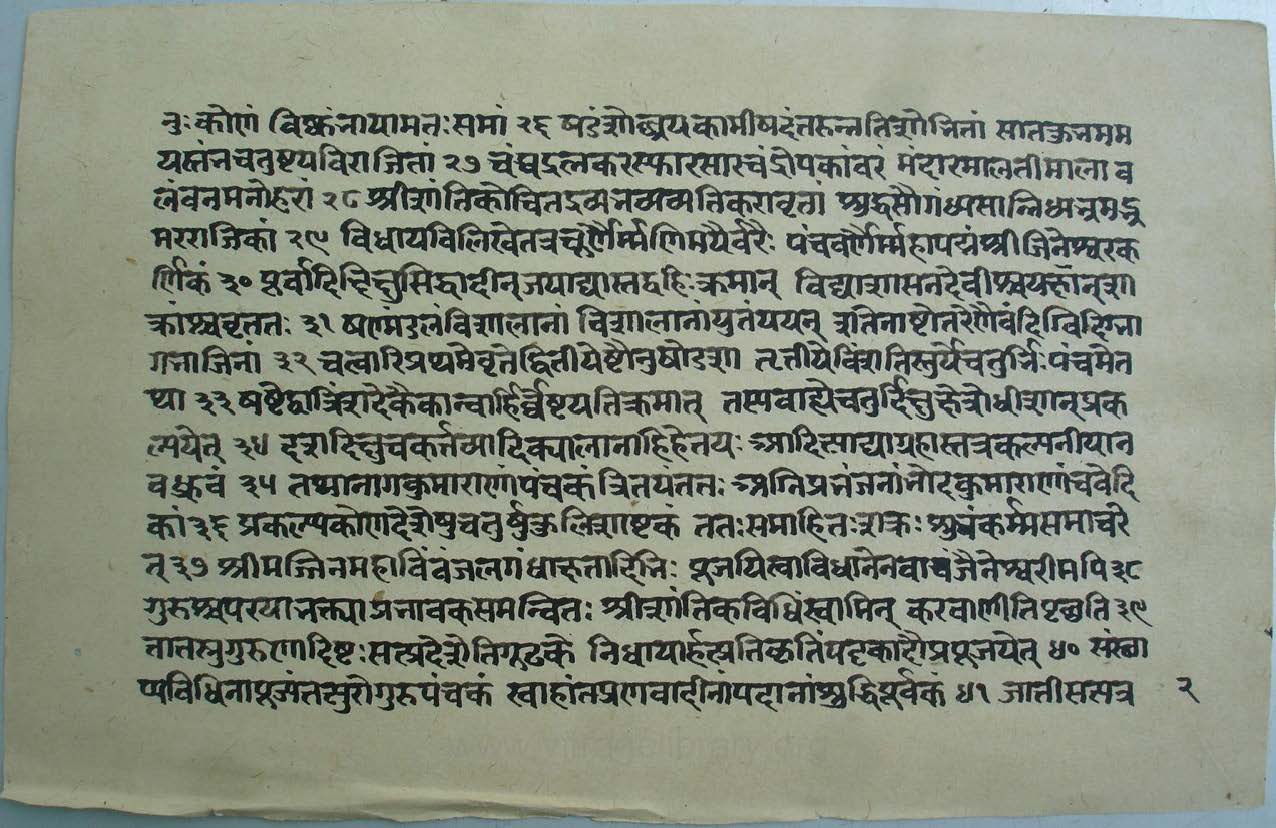 नुःकोणं विष्कंनायामतःसमां २६ षडंशोच्छ्रयकामीषदंतरुन्नतिशोभितां सातकुनमम
यस्तंनचतुष्टयविराजितां २७ चंचद्रत्नकरस्फारसारचंद्रोपकांवरं मंदारमालतीमाला व
लंवनमनोहरां २८ श्रीशांतिकोचितद्रव्यनव्यव्यतिकरावृतां शुद्धसौगंध्यसान्निध्यभ्रमद्भ्र
मरराजिकां २९ विधायविलिखेतत्रचूर्णैर्म्मणिमयैर्वरैः पंचवर्णैर्म्महापद्मंश्रीजिनेश्वरक
र्णिकं ३० पूर्वादिदिक्षुसिद्धादीन्जयाद्यास्तद्वहिःक्रमात् विद्याशासनदेवीश्चयक्षान्श
क्रांश्चवृततः ३१ षण्मंडलंविशालानां विशालानांयुतंययत् शतिनाष्टोतरेणैवंदिग्विदिग्ना
गनाजिनां ३२ चत्वारिप्रथमेवृतेद्वितीयेष्टौनुषोडश तृतीयेविंशतिस्तुर्यचतुर्भिःपंचमेत
था ३३ षष्टेद्वात्रिंशदेकैकान्वार्हिर्वेष्टयतिक्रमात् तस्यवाह्येचतुर्दिक्षुहेशेधीशान्प्रक
ल्पयेत् ३४ दशदिक्षुचकर्त्तव्यादिक्पालानाहिहेतयः आदित्याद्याग्रहास्तत्रकल्पनीयान
वध्रुवं ३५ तथानागकुमाराणांपंचकं त्रितयंततः अग्निप्रनंजनांनोदकुमाराणांचवेदि
कां ३६ प्रकल्प्यकोणदेशेषुचतुर्षुकुलिशाष्टकं ततःसमाहितःशक्रः शुनंकर्म्मसमाचरे
त् ३७ श्रीमज्जिनमहाविंवंजलगंधाक्षतादिनिः पूजयित्वाविधानेनवाचंजैनेश्वरीमपि ३८
गुरुश्चपरयानक्त्याप्रनावकसमन्वितः श्रीशांतिकविधिंस्वामिन् करवाणीतिपृच्छति ३९
तातस्गुगुरुणादिष्टःसत्प्रदेशेतिगुटके निधायार्हत्प्रतिकृतिंपट्टकादौप्रपूजयेत् ४० संस्ना
प्यविधिनापूज्यंतत्पुरोगुरुपंचकं स्वाहांतप्रणवादीनांपदानांशुद्धिपूर्वकं ४१ जातीससत्र २